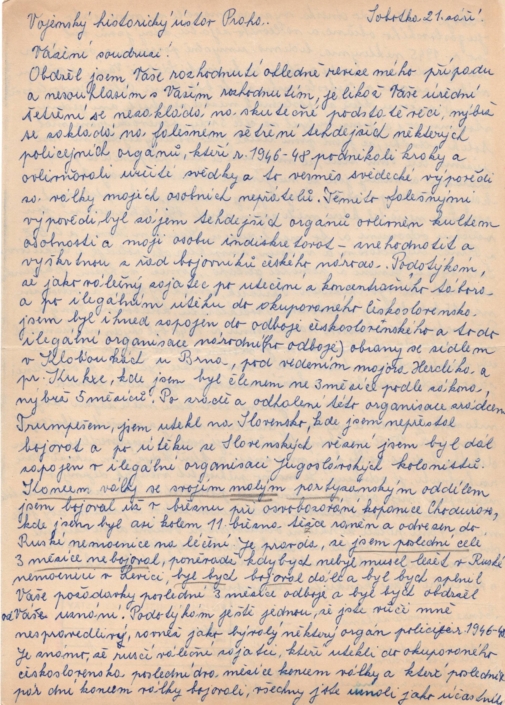 Vojenský historický ústav Praha..	Sobotka 21. září.
Vážení soudruzi!
Obdržel jsem Vaše rozhodnutí ohledně revise mého případu
a nesouhlasím s Vaším rozhodnutím, jelikož Vaše úřední
šetření se nezakládá na skutečné podstatě věci, nýbrž
se zakládá na falešném šetření tehdejších některých
policejních orgánů, kteří r. 1946-48 podnikali kroky a
ovlivňovali určité svědky a to vesměs svědecké výpovědi
za války mojich osobních nepřátelů. Těmito falešnými
výpovědi byl zájem tehdejších orgánů ovlivněn kultem
osobnosti a moji osobu indiskretovat – znehodnotit a
vyškrtnou z řad bojovníků českého národa. Podotýkám,
že jako válečný zajatec po utečení z koncentračního tábora
a po ilegálním útěku do okupovaného československa
jsem byl ihned zapojen do odboje československého a to do
ilegální organisace národní (ho odboje) obrany se sídlem
v Kloboukách u Brna, pod vedením majora Herdého a
pr. Kukre, kde jsem byl členem ne 3 měsíce podle zákona,
nýbrž 5 měsíců. Po zradě a odhalení této organisace zrádcem
Trumpešem, jsem utekl na Slovensko, kde jsem nepřestal
bojovat a po útěku ze Slovenských vězení jsem byl dál
zapojen v ilegální organisaci Jugoslávských kolonistů.
Koncem války se svojím malým partyzánským oddílem
jsem bojoval již v březnu při osvobozování kopanice Chodurova,
kde jsem byl asi kolem 11. března těžce raněn a odvezen do
Ruské nemocnice na léčení. Je pravda, že jsem poslední celé
3 měsíce nebojoval, poněvadž kdybych nebyl musel ležet v Ruské
nemocnici v Levici, byl bych bojoval dále a byl bych splnil
Vaše požadavky poslední 3 měsíce odboje a byl bych obdržel
Vaše uznání. Podotýkám ještě jednou, že jste vůči mně
nespravedlivý, rovněž jako bývalý některý orgán policie r. 1946-48
Je známo, že ruští váleční zajatci, kteří utekli do okupovaného
československa poslední dva měsíce koncem války a kteří poslední
pár dní koncem války bojovali, všechny jste uznali jako účastník